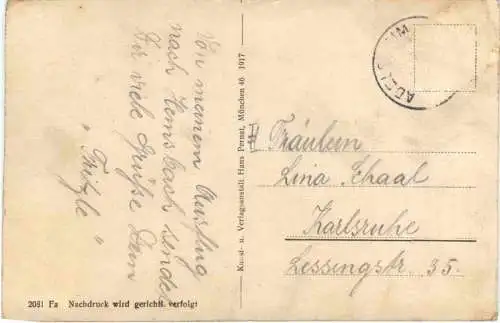 Von meinem Ausflug
nach Hemsbach sendet
Dir viele Grüße Dein
„ Fritzle “
Kunst- u. Verlagsanstalt Hans Pernat, München 46 1917
Fräulein
Lina Schaal
Karlsruhe
Lessingstr. 35.
2081 Fa Nachdruck wird gerichtl. verfolgt